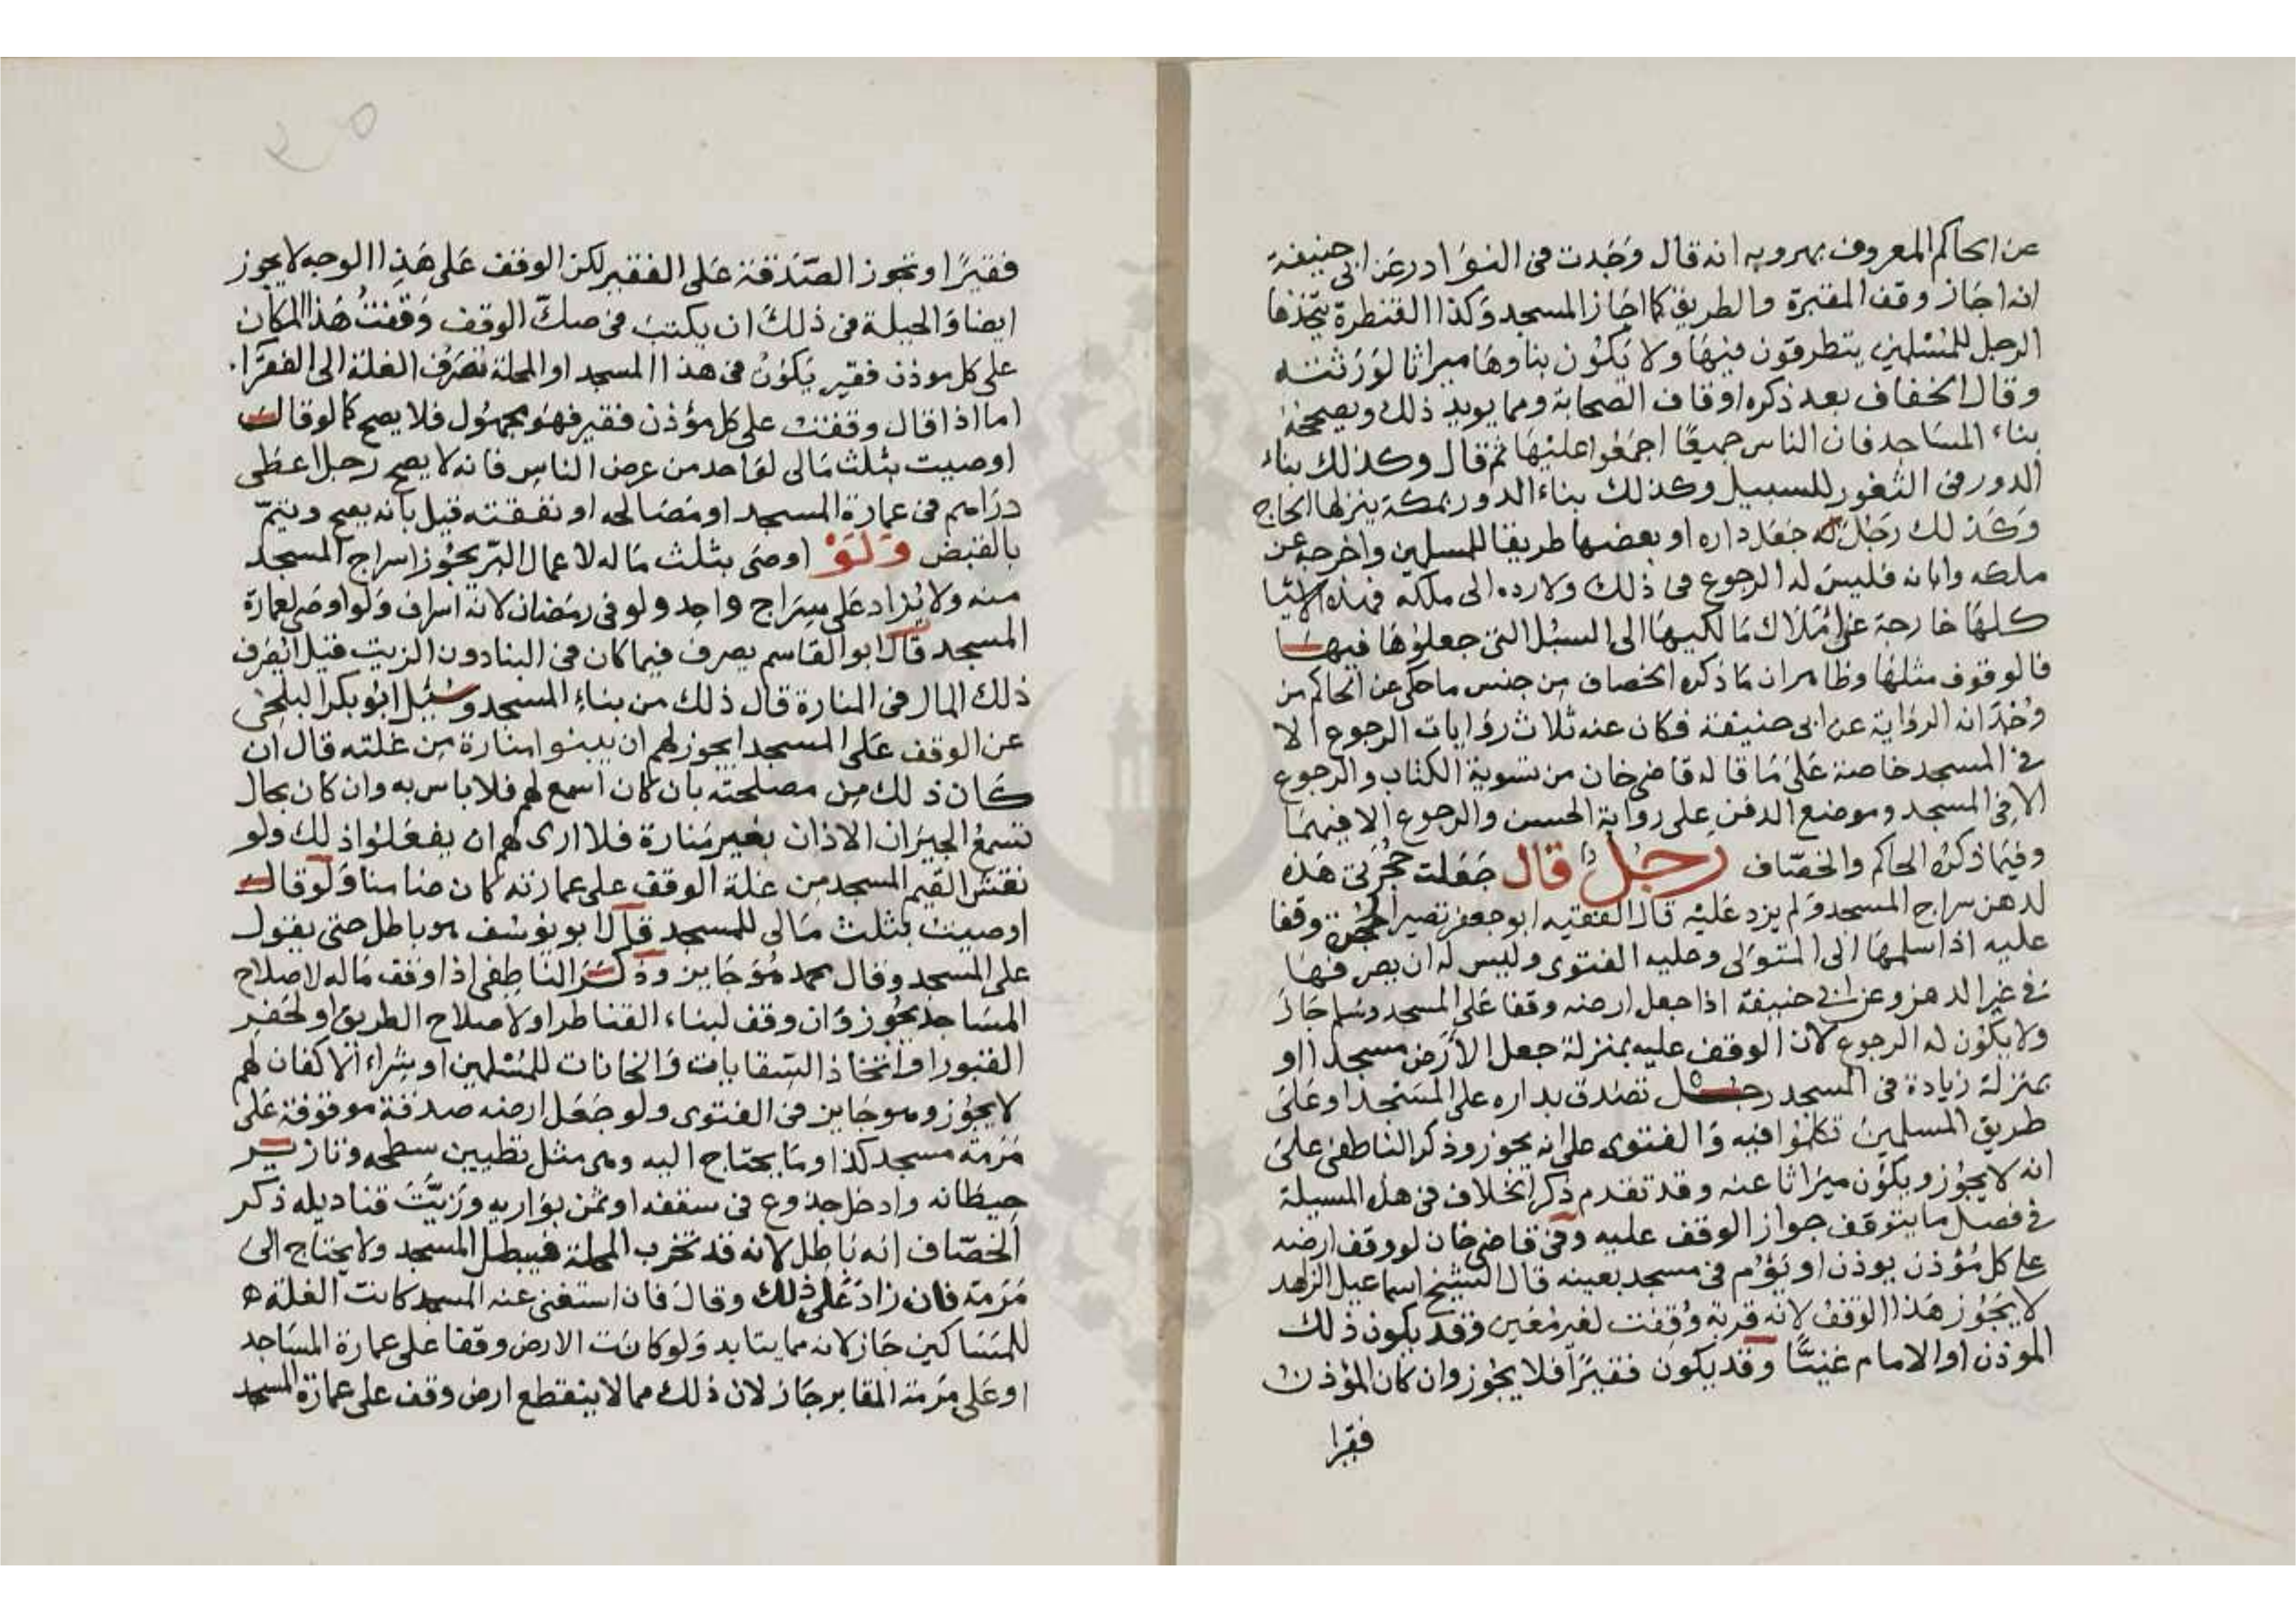 عن الحاكم المعروف بمهرويه انه قال وَجَدت في النوَادر عَن ابي حنيفة
انه اجَاز وقف المقبرة والطريق كما اجَاز المسجد وَكذا القنطرة يتخذها
الرجل للمُسْلمين يتطرقون فيهَا ولا يَكوُن بناوهَا ميراثا لوَرَثته
وقال الخفاف بعد ذكره اوقاف الصحابة ومما يويد ذلك ويصححه
بناء المسَاجد فان الناس جميعًا اجمَعُوا عليْهَا ثم قال وكذلك بناء
الدور في الثغور للسبيل وكذلك بناء الدور بمكة ينزلها الحاج
وَكَذلك رَجُل جَعَل داره او بعضها طريقا للمسلمين واخرجه عن
ملكه وابانه فليسَ له الرجوع في ذلك ولا رده الى ملكه فهذه الاشيا
كلهَا خارجة عَن امْلاك مَالكيهَا الى السبُل التي جعلوُها فيهَا
فالوقوف مثلهَا وظاهر ان مَا ذكره الخصاف من جنس ما حكى عن الحاكم من
وُجدَانه الروَاية عن ابي حنيفة فكان عنه ثلاث روَايات الرجوع الا
في المسجد خاصة عَلى مَا قاله قاضي خان من تسوية الكتاب والرجوع
الا في المسجد وموضع الدفن على رواية الحسن والرجوع الا فيهمَا
وفيمَا ذكرَه الحاكم والخصّاف رجل قال جَعَلت حجُرَتي هَذه
لدهن سراج المسجد وَلم يزد عَليْه قال الفقيه ابو جعفر تصير الحجرة وقفا
عليه اذا سلمهَا الى المتوَلى وعليه الفتوى وليس له ان يصرفهَا
في غير الدهن وعن ابي حنيفة اذا جعل ارضه وقفا عَلى المسجد وسَلم جَازَ
ولا يكوُن له الرجوع لان الوقف عليه بمنزلة جعل الاَرض مسجدا او
بمنزلة زيادة في المسجد رجُل تصَدق بداره على المسْجد او عَلى
طريق المسلمين تكلموُا فيه وَالفتوى على انه يجوز وذكر الناطفي على
انه لا يجوُز ويكوُن ميَراثا عنه وقد تقدم ذكر الخلاف في هذه المسيلة
في فصل ما يتوقف جواز الوقف عليه وَفي قاضي خان لو وقف ارضه
على كل مُؤذن يوذن او يَؤُم في مسجد بعينه قال الشيخ اسماعيل الزاهد
لا يَجُوز هَذا الوقف لانه قربة وُقفت لغير مُعَين وَقد يكون ذلك
الموذن او الامام غنيًّا وقد يكون فقيرًا فلا يجُوز وان كان المؤذن
فقيرا
فقيرًا وتجوز الصّدَقة عَلى الفقير لكن الوقف عَلى هَذا الوجه لا يجوز
ايضا وَالحيلة في ذلكَ ان يكتبَ في صكّ الوقف وَقفتُ هَذا المكان
على كل موذن فقير يَكوُنُ في هذا المسجد او المحلة تصَرف الغلة الى الفقرَا.
اما اذا قال وقفت على كل مؤذن فقير فهوَ مجهوُل فلا يصح كما لو قال
اوصيت بثلث مَالي لوَاحد من عرض الناس فانه لا يصح رجل اعطى
درَاهم في عمارة المسجد او مصَالحه او نفقته قيل بانه يصح ويتمّ
بالقبض وَلَوْ اوصَى بثلث مَاله لاعمال البّر يجوُز اسراج المسجد
منه ولا يُزاد عَلى سِرَاج واحِد ولو في رمَضان لانه اسراف وَلو اوصَى لعمارة
المسجد قال ابو القاسم يصرف فيما كان في البنا دون الزيت قيل ايصرف
ذلك المال في المنارة قال ذلك من بناءِ المسجد وسُئِل ابوُ بكر البلخي
عن الوقف عَلى المسجد ايجوز لهم ان يبنوا منارة مِن غلته قال ان
كَان ذلك مِن مصلحته بان كان اسمع لهم فلا باس به وان كان بحال
تسمعُ الجيَران الاذان بغير مَنارة فلا ارى لهم ان يفعَلوُا ذلك ولو
نقش القيم المسجد من غلة الوقف على عمارته كان ضامنا وَلو قال
اوصيت بثلث مَالي للمسجد قال ابو يوُسُف هو باطل حتى يقول
على المسجد وقال محمد هُوَ جَايز وذكرَ الناطِفي اذا وقف مَاله لاصلاح
المسَاجد يجُوز وَان وقف لبناء القناطر او لاصلاح الطريق او لحَفر
القبور او اتخاذ السّقايات وَالخانات للمُسْلمين او شِراء الاكفان لهم
لا يجوُز وهو جَايز في الفتوى ولو جَعَل ارضه صدقة موقوفة عَلى
مَرَمة مسجد كذا ومَا يحتاج اليه وهي مثل تطيين سطحه وتازير
حيطانه وادخل جذوع في سقفه او ثمن بوَاريه وزيّتَ قناديله ذكر
الخصّاف انه بَاطِل لانه قد تخرب المحلة فيبطل المسجد ولا يحتاج الى
مَرَمة فان زادَ عَلى ذلك وقالَ فان استغنى عنه المسجد كانت الغلة ه
للمَسَاكين جَاز لانه مما يتابد وَلو كانت الارض وقفا على عمارة المسَاجد
او عَلى مَرَمة المقابر جَاز لان ذلك مما لا ينقطع ارض وقف على عمارَة المسجد